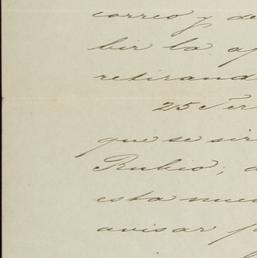 correo y de
bir la
retirand
25
que se sir
Rubio,
esta nue
avisar p